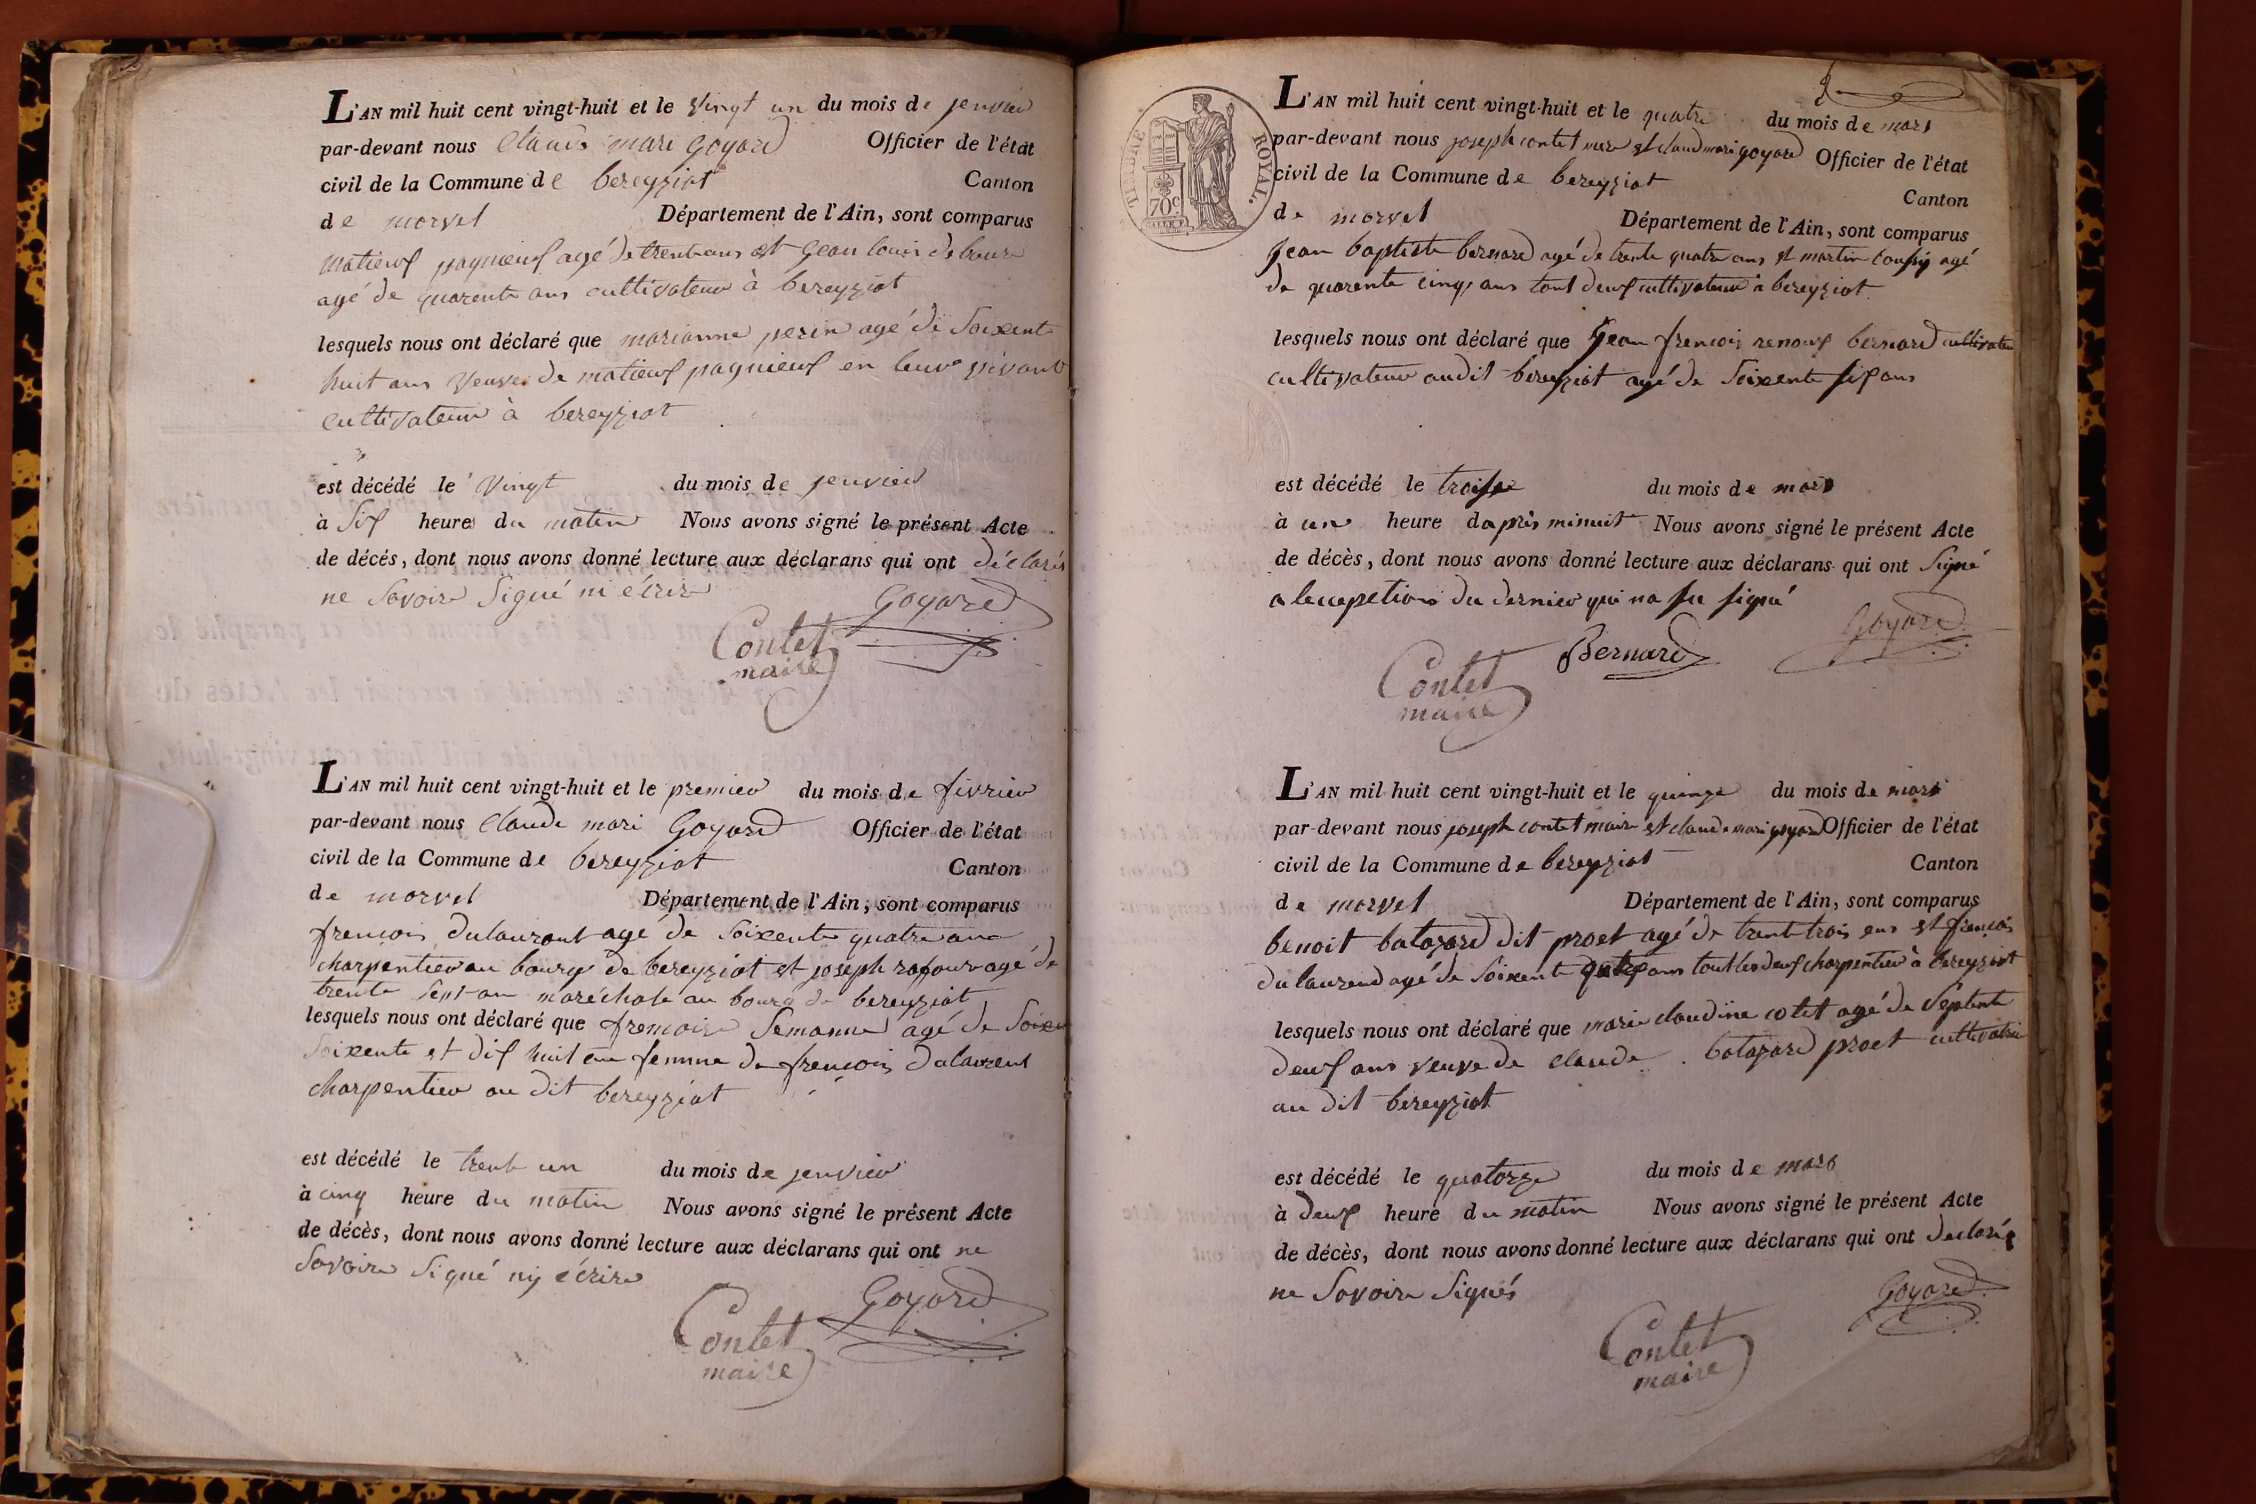 L'AN mil huit cent vingt-huit et le vingt un du mois de jenvier
par-devant nous Claude mari Goyard Officier de l'état
civil de la Commune de bereyziat Canton
de morvel Département de l'Ain, sont comparus
matieus pagnieus agé de trent ans et Gean louis de
agé de quarente ans cultivateur à bereyziat
lesquels nous ont déclaré que marianne perin agé de Soixente
huit ans veuve de matieus pagnieus en leur vivant
cultivateur à bereyziat
est décédé le vingt du mois de jenvier
à Sis heures du matin Nous avons signé le présent Acte
de décés, dont nous avons donné lecture aux déclarans qui ont déclarés
ne Savoire Signé ni écrire
Goyard
Contet
maire
L'AN mil huit cent vingt-huit et le premier du mois de fivrier
par-devant nous Claude mari Goyard Officier de l'état
civil de la Commune de bereyziat Canton
de morvel Département de l'Ain, sont comparus
frencois dulaurant agé de Soixente quatre ans
charpentier au bourg de bereyziat et joseph rafour agé de
trente Sept an maréchale au bourg de bereyziat
lesquels nous ont déclaré que Semonne agé de
Soixente et dis huit an femme de frencois dulaurent
charpentier au dit bereyziat
est décédé le trent un du mois de jenvier
à cinq heure du matin Nous avons signé le présent Acte
de décès, dont nous avons donné lecture aux déclarans qui ont ne
Savoire Signé ny écrire
Goyard
Contet
maire
TIMBRE ROYAL.
70c
L'AN mil huit cent vingt-huit et le quatre du mois de mars
par-devant nous joseph contet mere et claud mari goyard Officier de l'état
civil de la Commune de bereyziat Canton
de morvel Département de l'Ain, sont comparus
jean baptiste bernard agé de trente quatre ans et martin agé
de quarente cinq ans tout deus cultivateur à bereyziat
lesquels nous ont déclaré que Gean frencois bernard cultivateur
cultivateur audit bereyziat agé de Soixente sis ans
est décédé le troise du mois de mars
à un heure daprès minuit Nous avons signé le présent Acte
de décès, dont nous avons donné lecture aux déclarans qui ont Signé
a du dernier qui na su signé
Goyard
Bernard
Contet
maire
L'AN mil huit cent vingt-huit et le quinze du mois de mars
par-devant nous joseph contet maire et claude mari goyard Officier de l'état
civil de la Commune de bereyziat Canton
de morvel Département de l'Ain, sont comparus
benoit batazard dit proet agé de trent trois ens et frencois
dulaurend agé de Soixent ans tout les deus charpentier à bereyziat
lesquels nous ont déclaré que marie claudine cotet agé de Septente
deus ans veuve de claude batazard proet
au dit bereyziat
est décédé le quatorze du mois de mars
à deus heure du matin Nous avons signé le présent Acte
de décès, dont nous avons donné lecture aux déclarans qui ont declarés
ne Savoire Signés
Goyard
Contet
maire